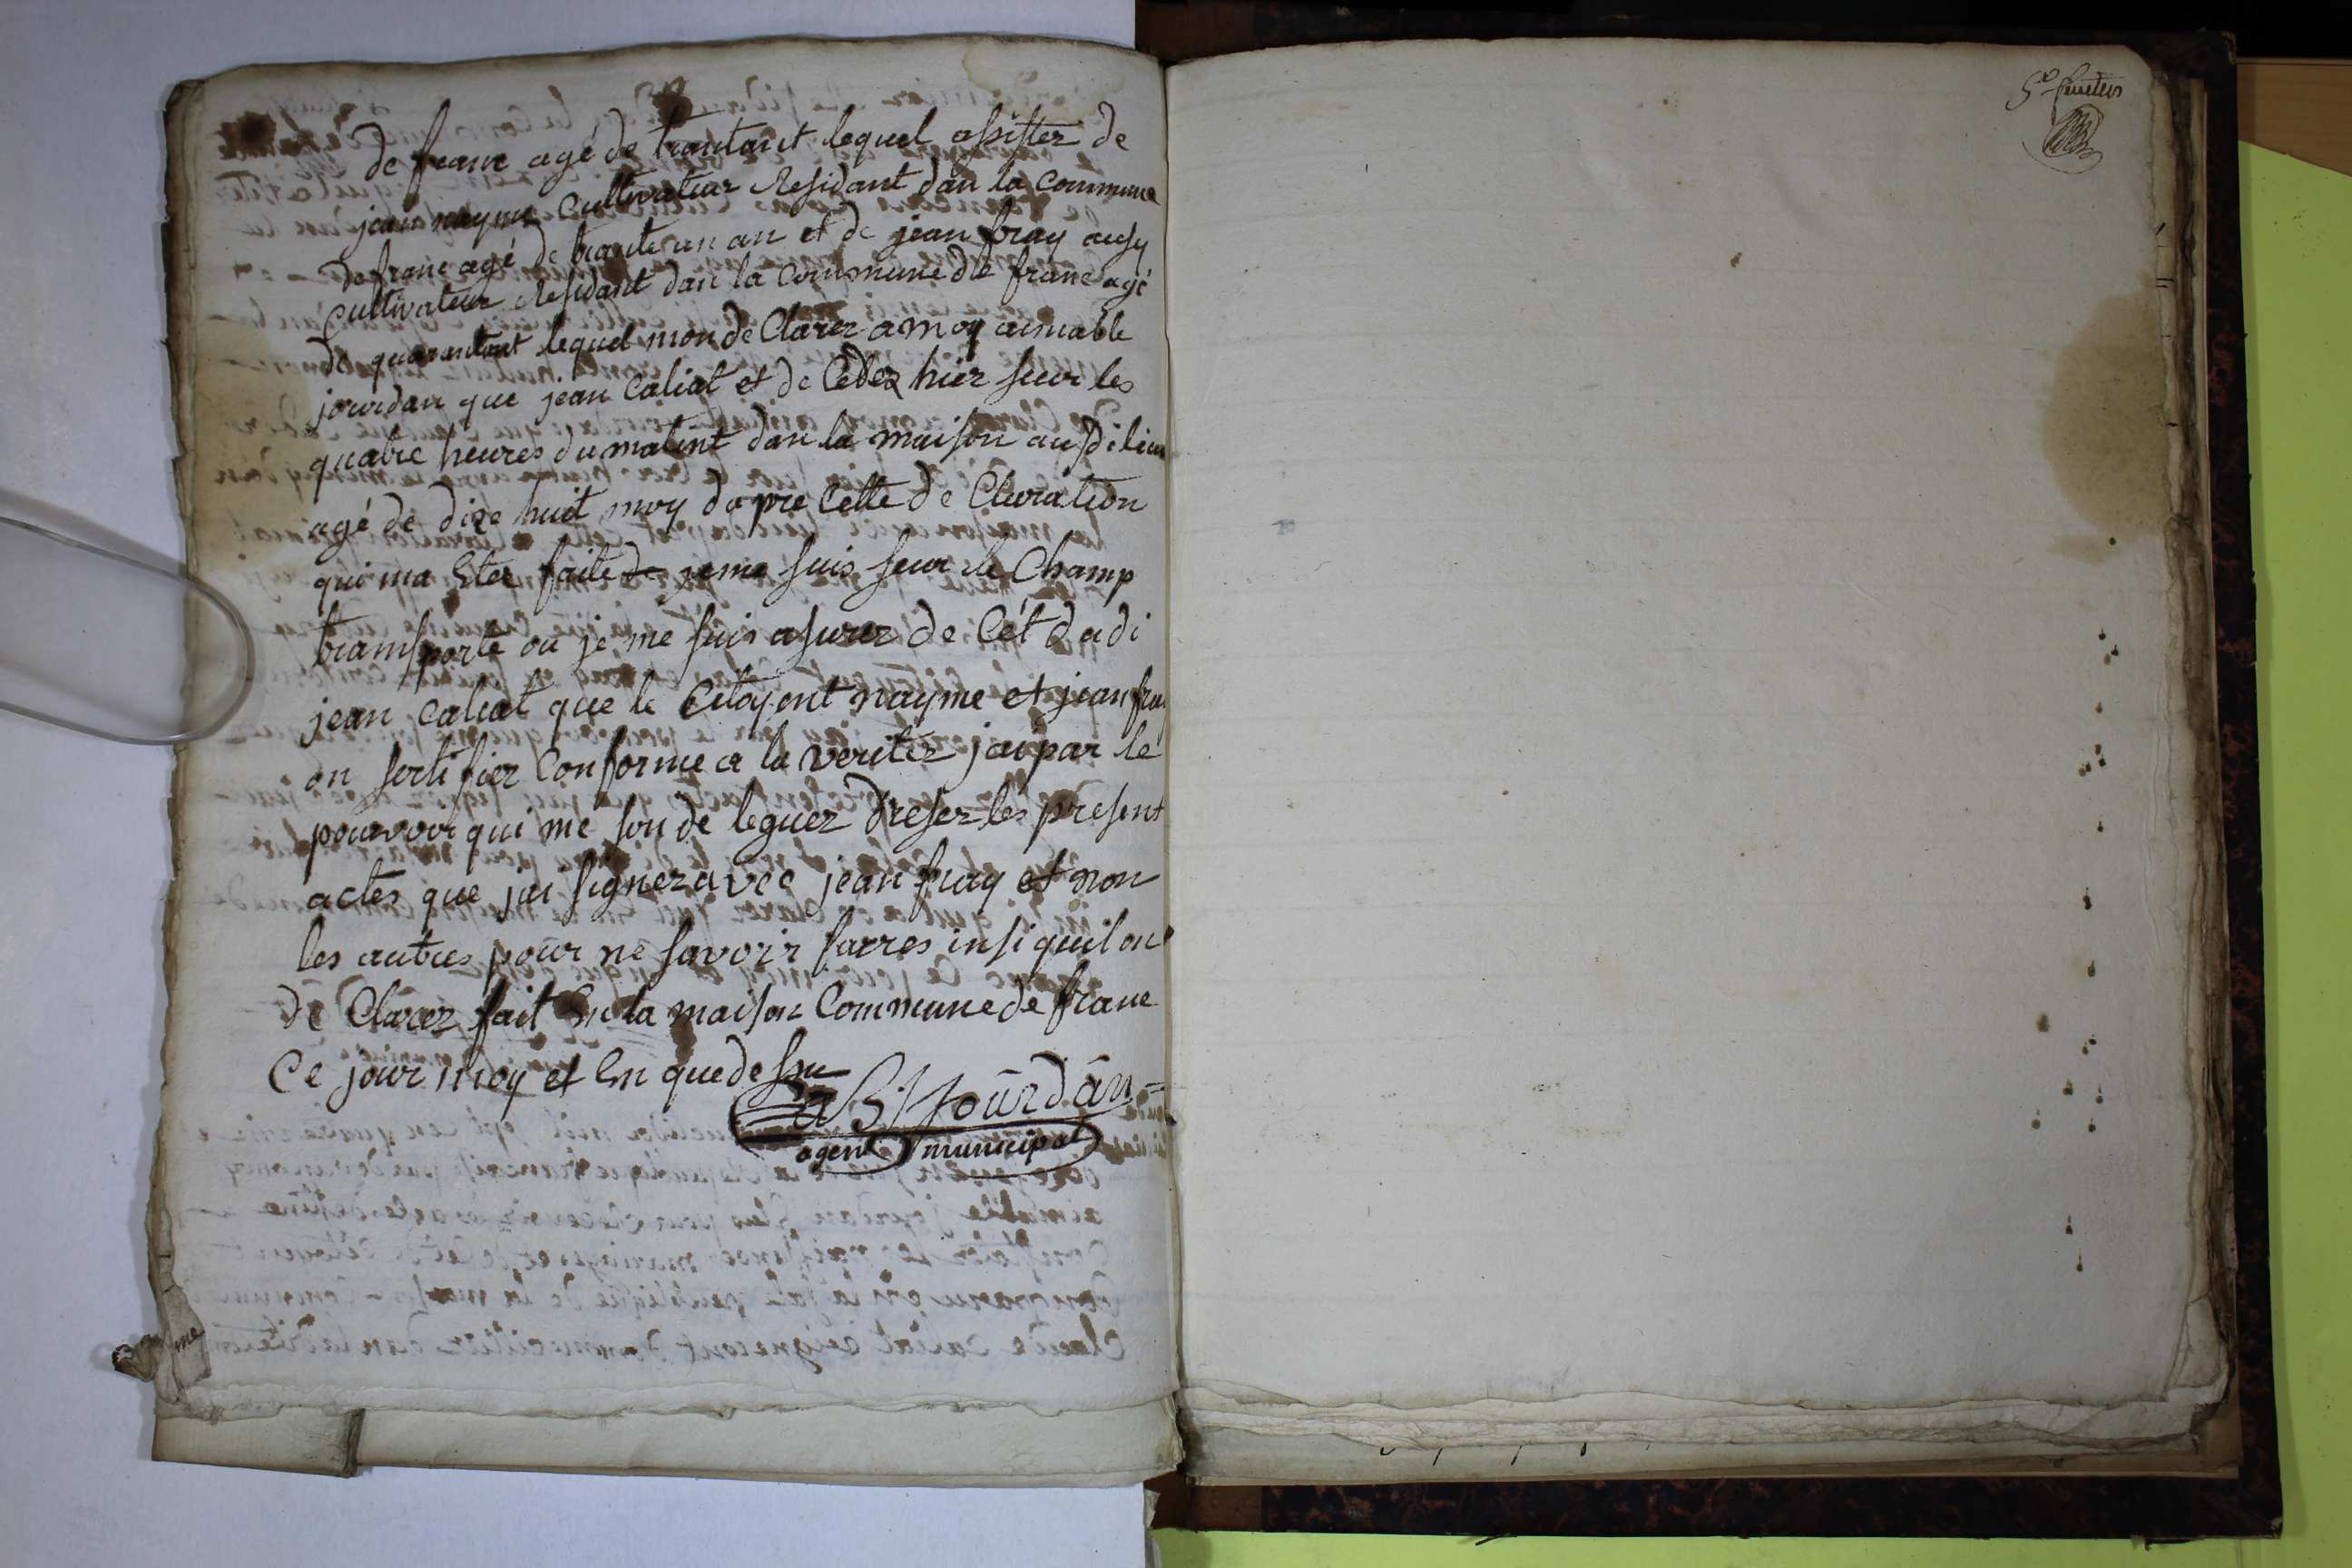 de franc agé de trantant lequel assister de
jean nayme Cultivateur Residant dan la commune
de franc agé de trante un an et de jean fray ausy
Cultivateur Residant dan la commune de franc agé
de quarantant lequel mon de Clarer a moy aimable
jourdan que jean Caliat et de Cedez hier seur les
quatre heures du matint dan la maison audi lieu
agé de dixe huit moy dapre Cette de Claration
qui ma Eter faite de je me suis seur le Champ
transporté ou je me suis asurer de Cét dadi
jean Caliat que le Citoyent nayme et jean fray
on sertifier Conforme a la veriter jai par le
pouvoir qui me son de leguer dreser les present
actes que jai signer avec jean fray et non
les autres pour ne savoir farres insi quil on
de Clarer fait En la maison Commune de franc
Ce jour moy et En que dessu
Jourdan
agent municipal
5e feuillets
me